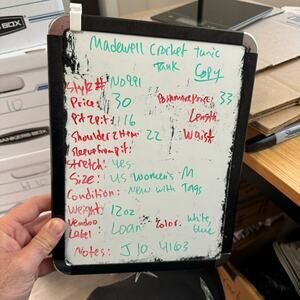 Madewell Crochet Tunic
Tank Copy
Style# N0991
Price: 30 Poshmark Price: 33
Pit 2 pit: 16 Length:
Shoulder 2 Hem: 22 Waist
Sleeve from pit:
Stretch: yes
Size: US Women's M
Condition: New with Tags
Weight: 12oz
Vendoo Label Loan Color: white, blue
Notes: J10 41163
BANKERS BOX
BOX